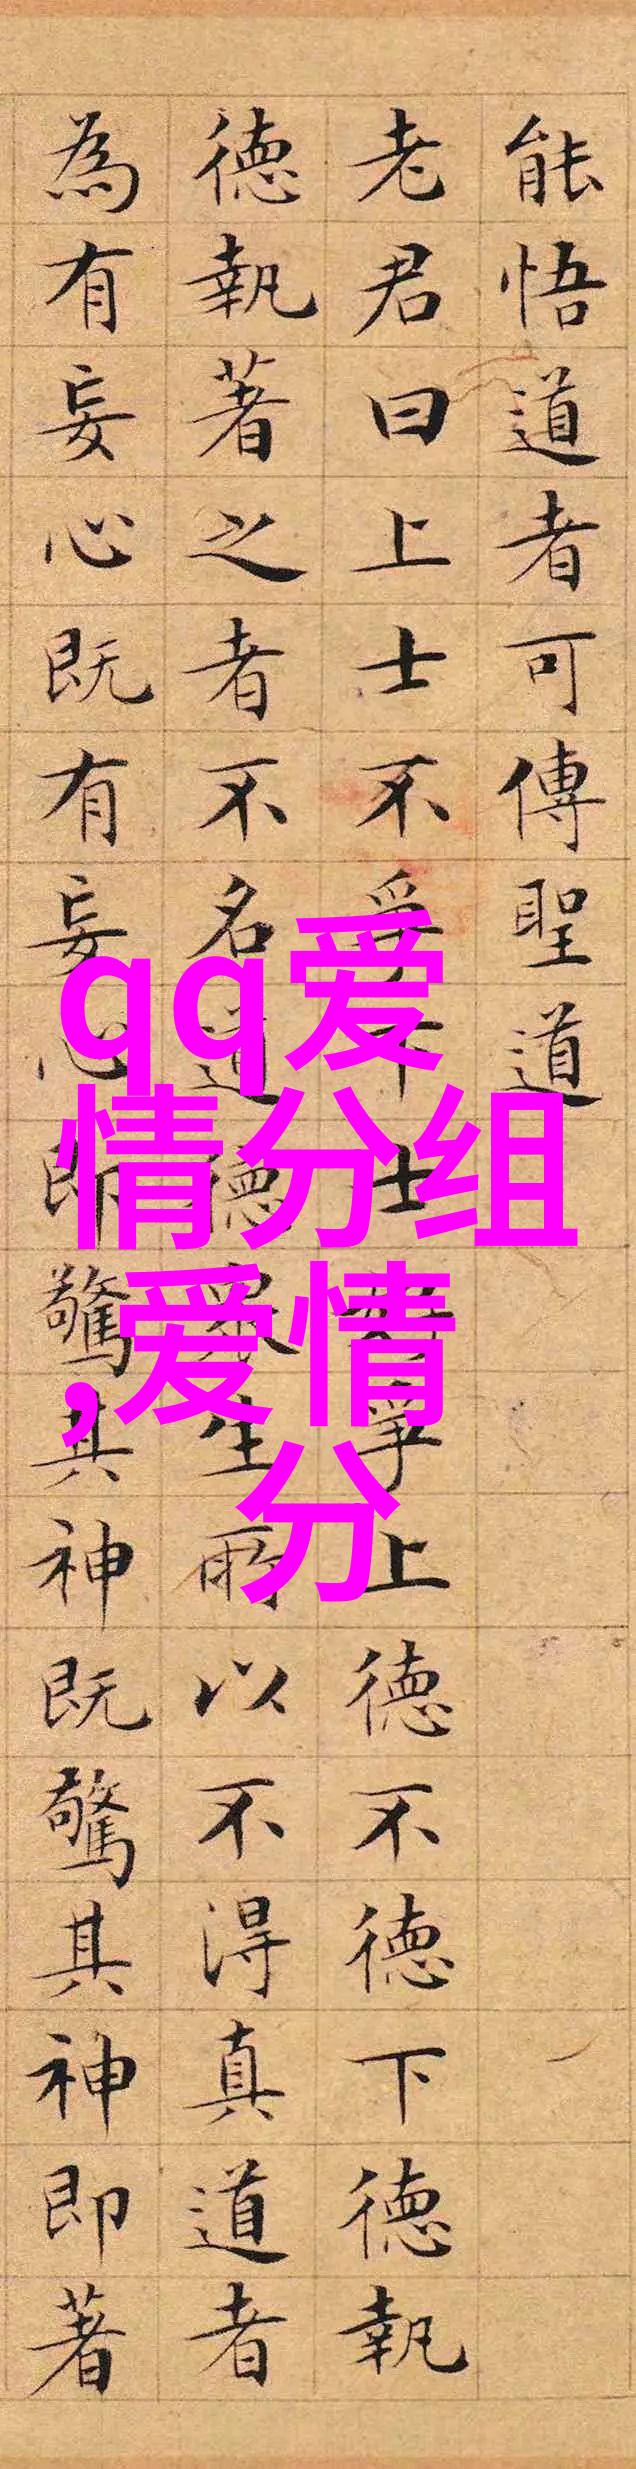 能悟道者可傳聖道
老君曰上士不爭下士好爭上德不德下德執
德執著之者不名道德眾生所以不得真道者
為有妄心既有妄心即驚其神既驚其神即著
qq爱
情分组
,爱情
分